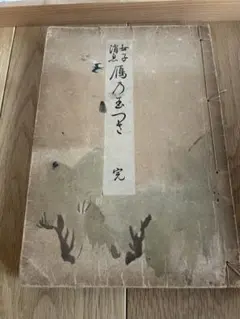 女子
消息
鴈乃玉つさ
完